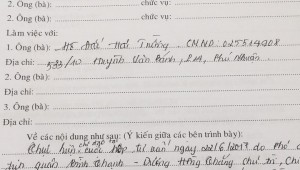 2. Ông (bà) chức vụ:
2. Ông (bà) chức vụ:
Làm việc với:
1. Ông (bà): Hồ Đắc Hải Trường. CMND: 025514008
Địa chỉ: 533/10 Huỳnh Văn Bánh, P.14, Phú Nhuận.
2. Ông (bà)
Địa chỉ:
3. Ông (bà)
Địa chỉ:
Về các nội dung như sau: (Ý kiến giữa các bên trình bày):
cuộc họp tư vấn ngày 22/6/2017 do
quận Bình Thạnh - Dương Hồng Thắng chủ trì,